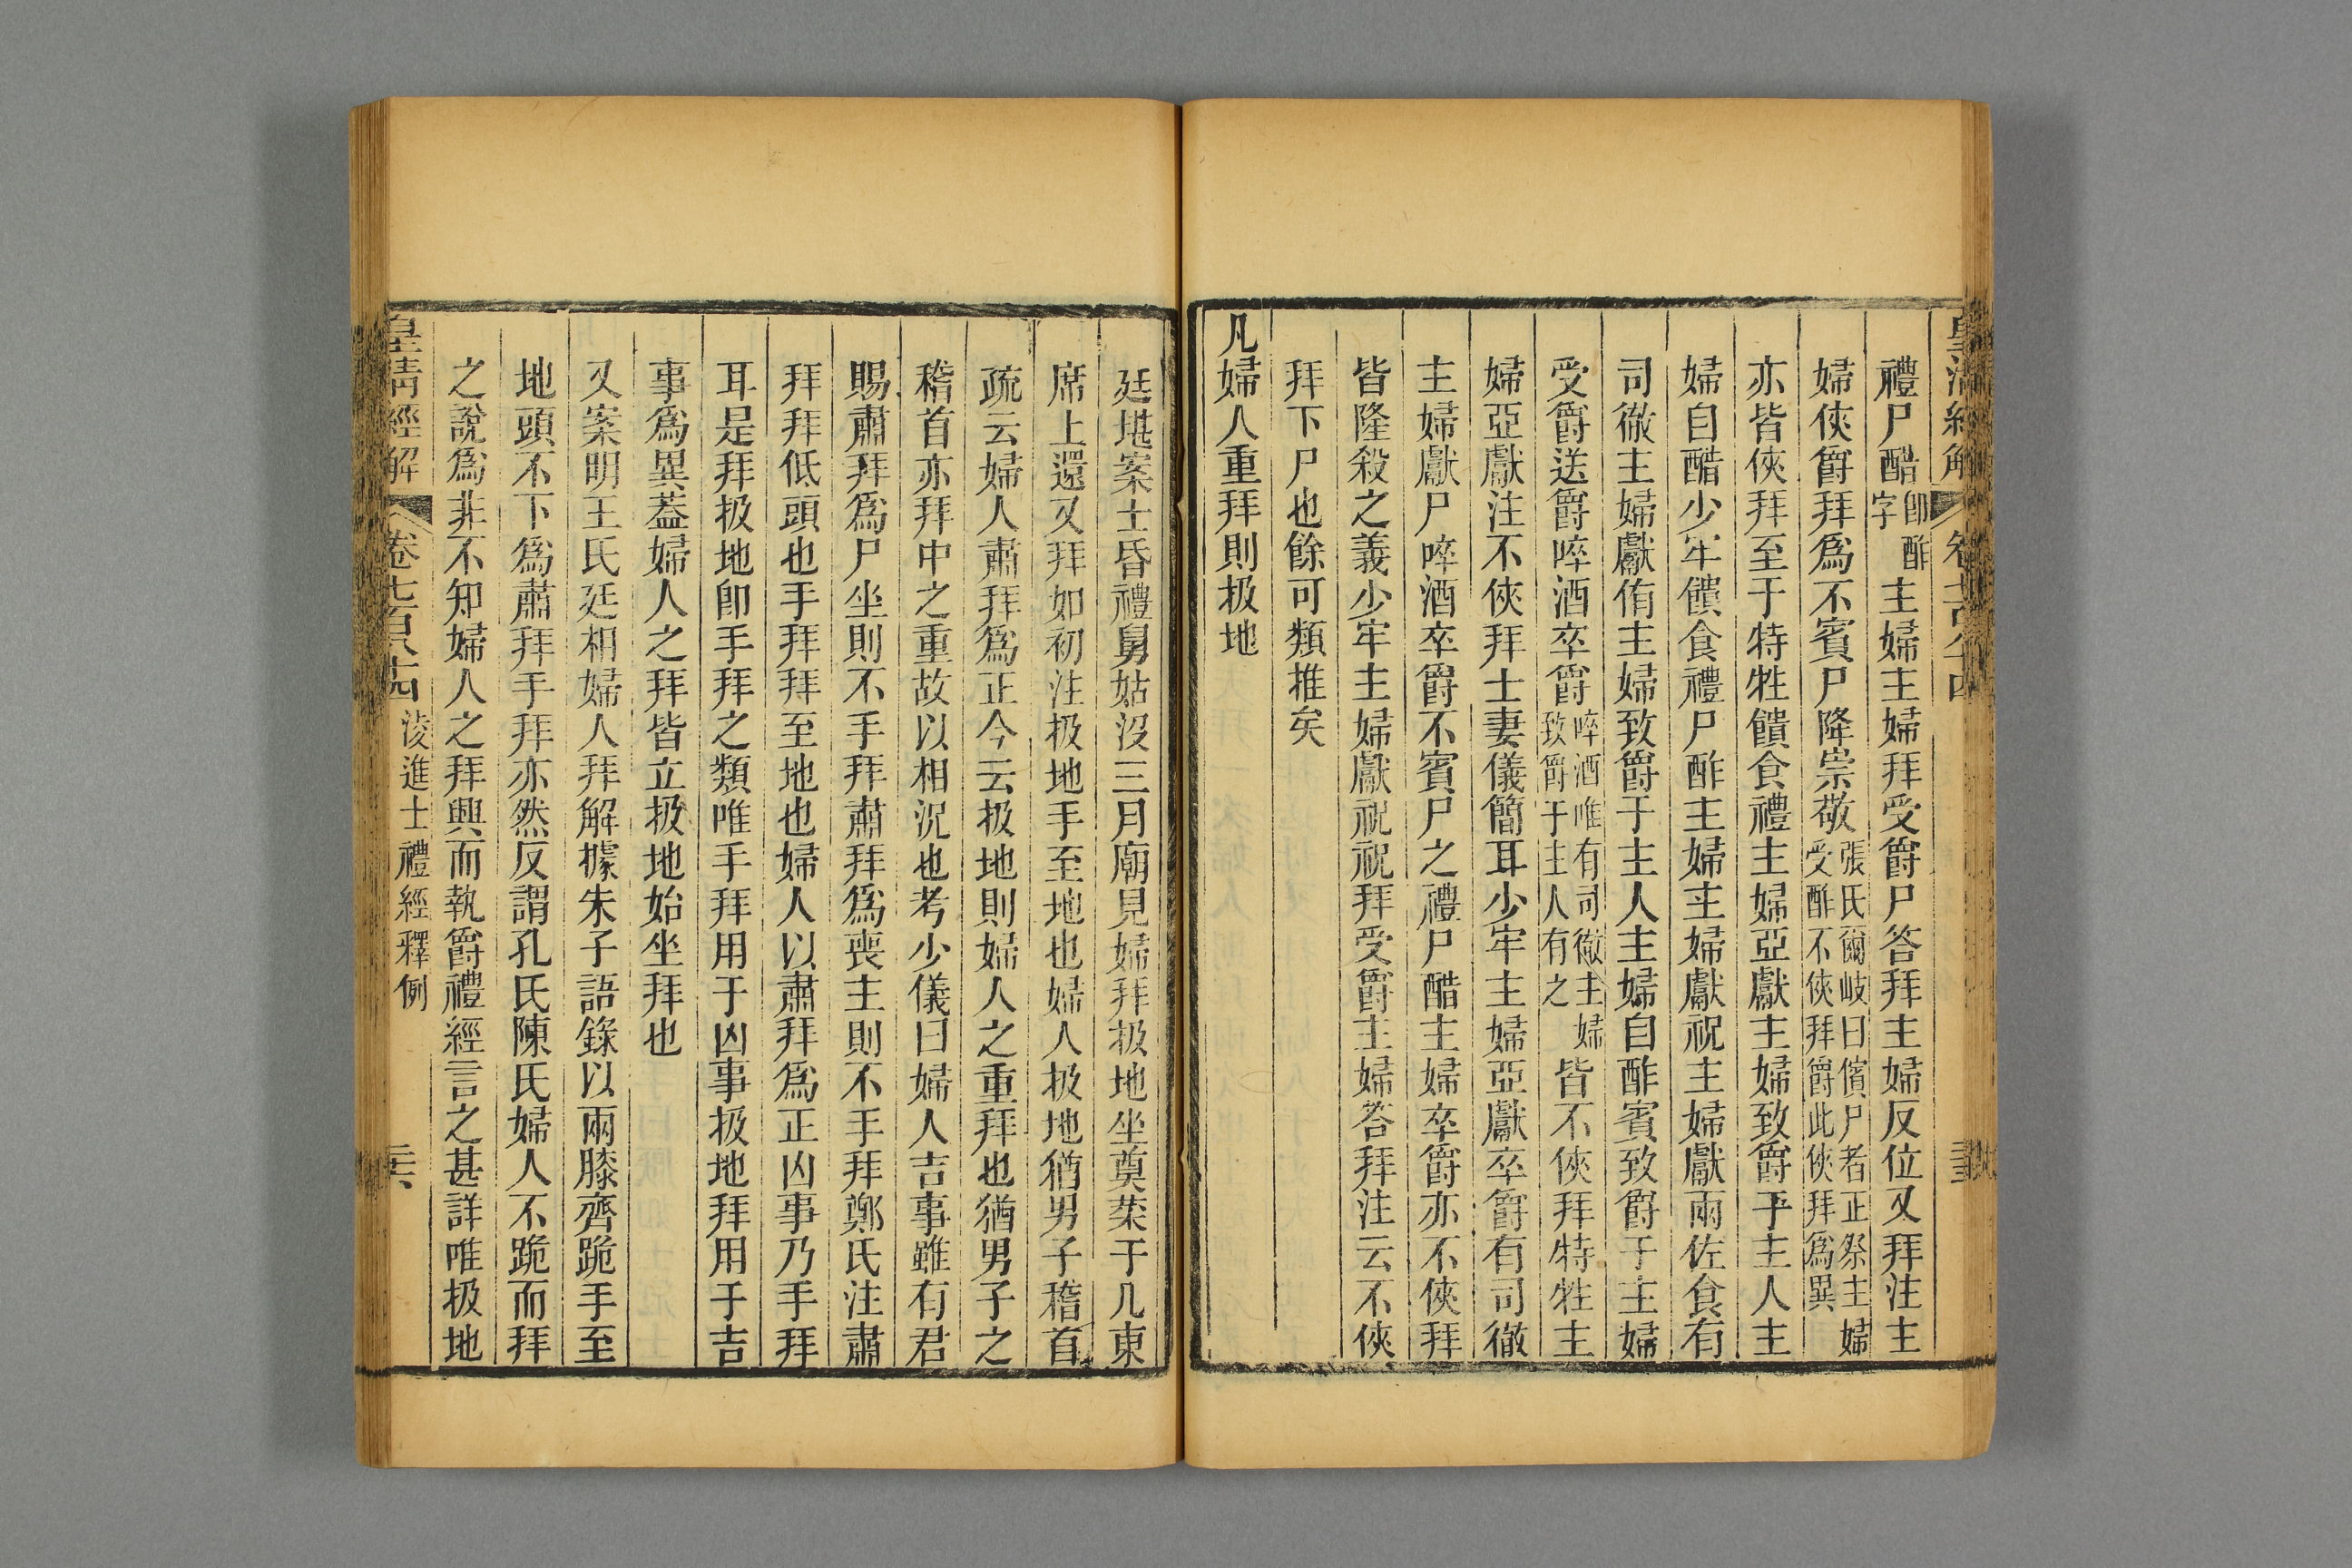 禮尸醋卽酢字主婦主婦拜受爵尸答拜主婦反位又拜注主
婦俠爵拜爲不賓尸降崇敬張氏爾岐曰儐尸者正祭主婦受酢不俠拜爵此俠拜爲異
亦皆俠拜至于特牲饋食禮主婦亞獻主婦致爵于主人主
婦自醋少牢饋食禮尸酢主婦主婦獻祝主婦獻兩佐食有
司徹主婦獻侑主婦致爵于主人主婦自酢賓致爵于主婦
受爵送爵啐酒卒爵啐酒唯有司徹主婦致爵于主人有之皆不俠拜特牲主
婦亞獻注不俠拜士妻儀簡耳少牢主婦亞獻卒爵有司徹
主婦獻尸啐酒卒爵不賓尸之禮尸醋主婦卒爵亦不俠拜
皆隆殺之義少牢主婦獻祝祝拜受爵主婦荅拜注云不俠
拜下尸也餘可類推矣
凡婦人重拜則扱地
廷堪案士昏禮舅姑沒三月廟見婦拜扱地坐奠菜于几東
席上還又拜如初注扱地手至地也婦人扱地猶男子稽首
疏云婦人肅拜爲正今云扱地則婦人之重拜也猶男子之
稽首亦拜中之重故以相況也考少儀曰婦人吉事雖有君
賜肅拜爲尸坐則不手拜肅拜爲喪主則不手拜鄭氏注肅
拜拜低頭也手拜拜至地也婦人以肅拜爲正凶事乃手拜
耳是拜扱地卽手拜之類唯手拜用于凶事扱地拜用于吉
事爲異葢婦人之拜皆立扱地始坐拜也
又案明王氏廷相婦人拜解據朱子語錄以兩膝齊跪手至
地頭不下爲肅拜手拜亦然反謂孔氏陳氏婦人不跪而拜
之說爲非不知婦人之拜興而執爵禮經言之甚詳唯扱地
皇淸經解 卷七百八十四 淩進士禮經釋例 三六